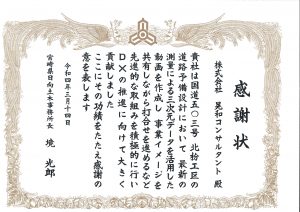 感謝状
株式会社 晃和コンサルタント 殿
貴社は国道五〇三号 北粉工区の
道路予備設計において最新の
測量による三次元データを活用した
動画を作成し、事業イメージを
共有しながら打合せを進めるなど
先進的な取組みを積極的に行い
DXの推進に向けて大きく
貢献しました
ここにその功績をたたえ感謝の
意を表します
令和四年三月十四日
宮崎県日向土木事務所長 境 光郎